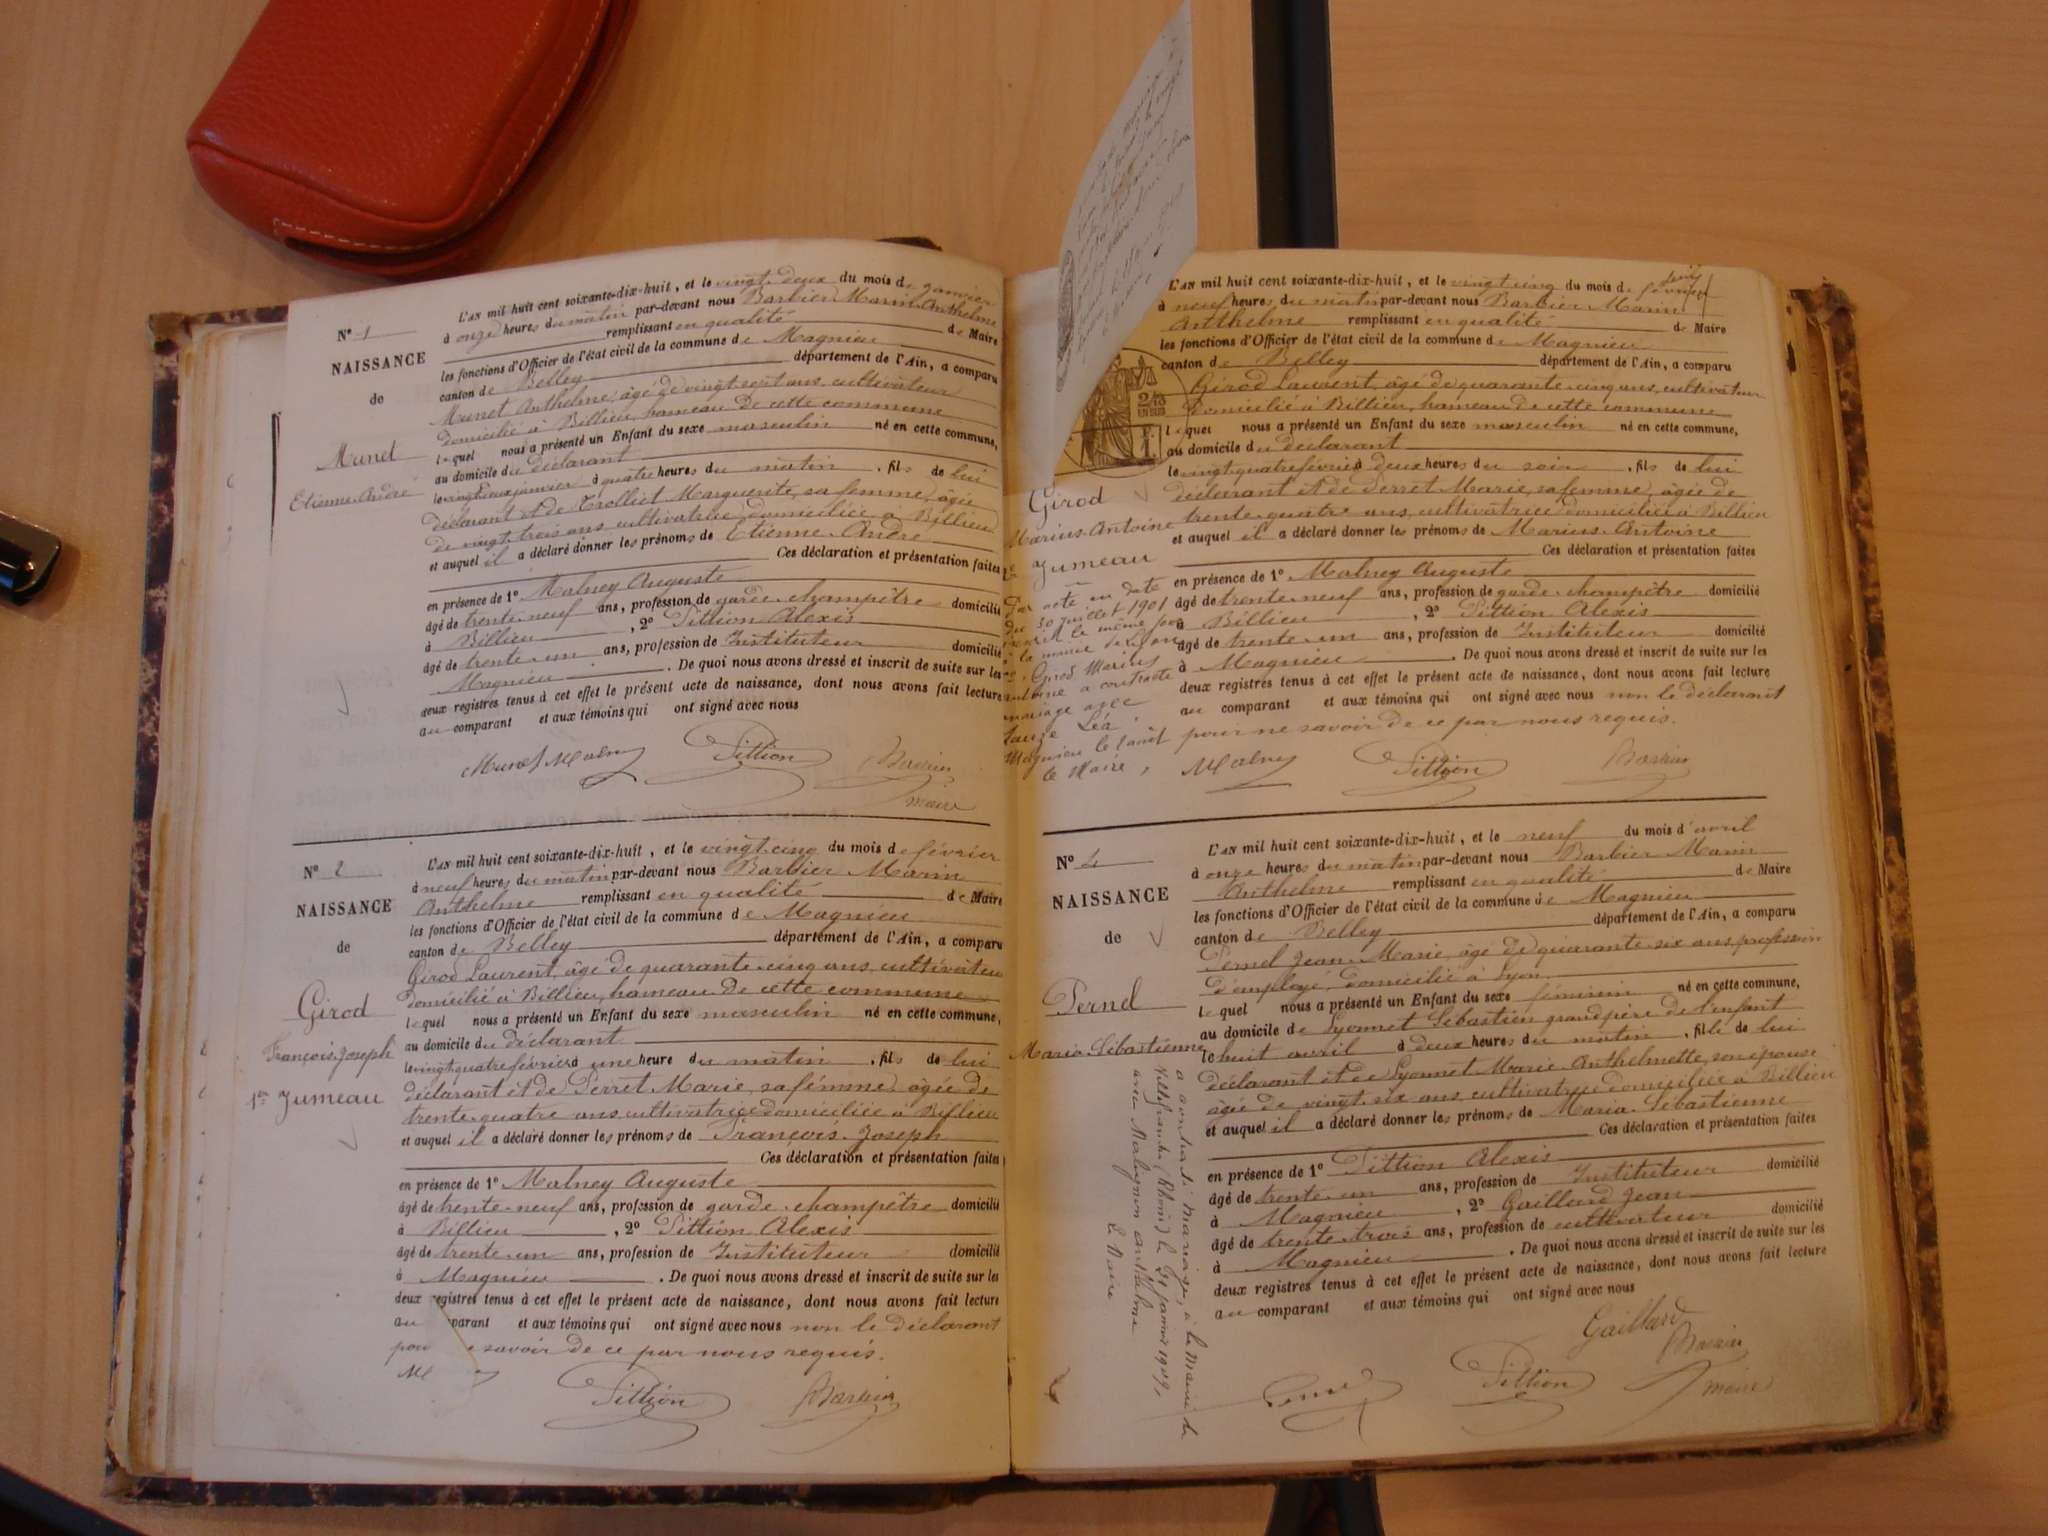 L'AN mil huit cent soixante-dix-huit, et le vingt deux du mois de janvier
à onze heures du matin par-devant nous Barbier Marin Anthelme
remplissant en qualité de Maire
les fonctions d'Officier de l'état civil de la commune de Magnieu
canton de Belley département de l'Ain, a comparu
Munet Anthelme, âgé de vingt sept ans, cultivateur
domicilié à Billieu, hameau de cette commune
lequel nous a présenté un Enfant du sexe masculin né en cette commune,
au domicile du déclarant
le vingt deux janvier à quatre heures du matin, fils de lui
déclarant et de Trolliet Marguerite, sa femme, âgée
de vingt trois ans cultivatrice domiciliée à Billieu
et auquel il a déclaré donner les prénoms de Etienne André
Ces déclaration et présentation faites
en présence de 1° Malney Auguste
âgé de trente neuf ans, profession de garde champêtre domicilié
à Billieu, 2° Pittion Alexis
âgé de trente un ans, profession de Instituteur domicilié
Magnieu. De quoi nous avons dressé et inscrit de suite sur les
deux registres tenus à cet effet le présent acte de naissance, dont nous avons fait lecture
au comparant et aux témoins qui ont signé avec nous
Munet Malney Pittion Barbier
maire
N° 1
NAISSANCE
de
Munet
Etienne André
N° 2
NAISSANCE
de
Girod
François Joseph
1er Jumeau
L'AN mil huit cent soixante-dix-huit, et le vingt cinq du mois de février
à neuf heures du matin par-devant nous Barbier Marin
Anthelme remplissant en qualité de Maire
les fonctions d'Officier de l'état civil de la commune de Magnieu
canton de Belley département de l'Ain, a comparu
Girod Laurent, âgé de quarante cinq ans, cultivateur
domicilié à Billieu, hameau de cette commune
lequel nous a présenté un Enfant du sexe masculin né en cette commune,
au domicile du déclarant
le vingt quatre février à une heure du matin, fils de lui
déclarant et de Perret Marie, sa femme, âgée de
trente quatre ans cultivatrice domiciliée à Billieu
et auquel il a déclaré donner les prénoms de François Joseph
Ces déclaration et présentation faites
en présence de 1° Malney Auguste
âgé de trente-neuf ans, profession de garde champêtre domicilié
à Billieu, 2° Pittion Alexis
âgé de trente un ans, profession de Instituteur domicilié
à Magnieu. De quoi nous avons dressé et inscrit de suite sur les
deux registres tenus à cet effet le présent acte de naissance, dont nous avons fait lecture
au parant et aux témoins qui ont signé avec nous non le déclarant
pou e savoir de ce par nous requis.
Pittion Barbier
L'AN mil huit cent soixante-dix-huit, et le vingt cinq du mois de février
à neuf heures du matin par-devant nous Barbier Marin
Anthelme remplissant en qualité de Maire
les fonctions d'Officier de l'état civil de la commune de Magnieu
canton de Belley département de l'Ain, a comparu
Girod Laurent, âgé de quarante cinq ans, cultivateur
domicilié à Billieu, hameau de cette commune
lequel nous a présenté un Enfant du sexe masculin né en cette commune,
au domicile du déclarant
le vingt quatre février à deux heures du soir, fils de lui
déclarant et de Perret Marie, sa femme, âgée de
trente quatre ans, cultivatrice domiciliée à Billieu
et auquel il a déclaré donner les prénoms de Marius Antoine
Ces déclaration et présentation faites
en présence de 1° Malney Auguste
âgé de trente neuf ans, profession de garde champêtre domicilié
à Billieu, 2° Pittion Alexis
âgé de trente un ans, profession de Instituteur domicilié
à Magnieu. De quoi nous avons dressé et inscrit de suite sur les
deux registres tenus à cet effet le présent acte de naissance, dont nous avons fait lecture
au comparant et aux témoins qui ont signé avec nous non le déclarant
pour ne savoir de ce par nous requis.
Malney Pittion Barbier
Girod
Marius Antoine
Jumeau
acte en date
du 30 juillet 1901
le même jour
la mairie de Lyon
Girod Marius
Antoine a contracté
mariage avec
Léa
Magnieu le
le Maire,
N° 4
NAISSANCE
de
Pernel
Maria Sébastienne
L'AN mil huit cent soixante-dix-huit, et le neuf du mois d'avril
à onze heures du matin par-devant nous Barbier Marin
Anthelme remplissant en qualité de Maire
les fonctions d'Officier de l'état civil de la commune de Magnieu
canton de Belley département de l'Ain, a comparu
Pernel Jean Marie, âgé de quarante six ans, profession
d'employé, domicilié à Lyon
lequel nous a présenté un Enfant du sexe féminin né en cette commune,
au domicile de Lyonnet Sébastien grand père de l'enfant
le huit avril à deux heures du matin, fille de lui
déclarant et de Lyonnet Marie Anthelmette, son épouse
âgée de vingt six ans cultivatrice domiciliée à Billieu
et auquel il a déclaré donner les prénoms de Maria Sébastienne
Ces déclaration et présentation faites
en présence de 1° Pittion Alexis
âgé de trente un ans, profession de Instituteur domicilié
à Magnieu, 2° Gaillard Jean
âgé de trente trois ans, profession de cultivateur domicilié
à Magnieu. De quoi nous avons dressé et inscrit de suite sur les
deux registres tenus à cet effet le présent acte de naissance, dont nous avons fait lecture
au comparant et aux témoins qui ont signé avec nous
Gaillard
Pernel Pittion Barbier
maire
a contracté mariage, à la Mairie de
Villefranche (Rhône) le 21 janvier 1909,
avec Malignon Anthelme
Le Maire